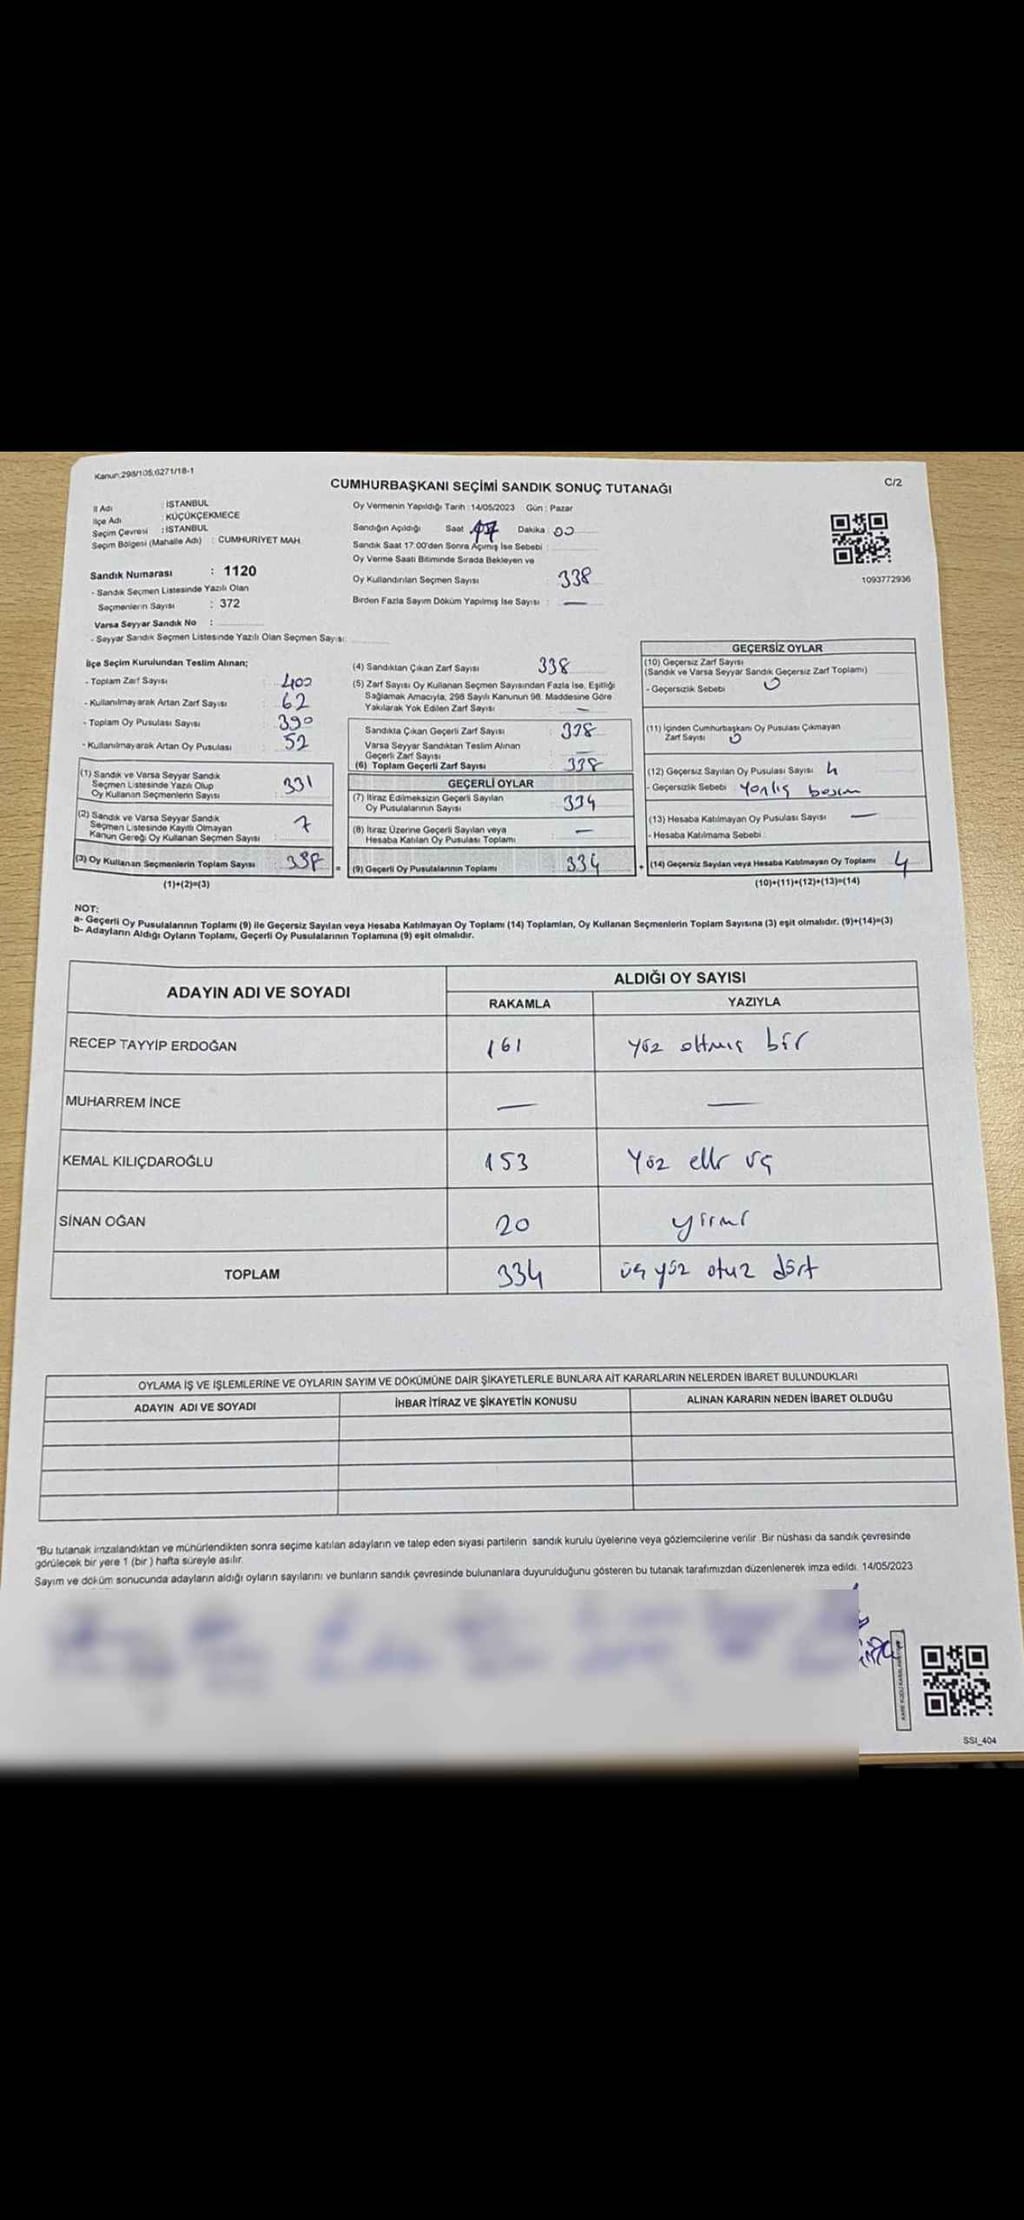 Kanun:298/105;6271/18-1
C/2
CUMHURBAŞKANI SEÇİMİ SANDIK SONUÇ TUTANAĞI
İl Adı : İSTANBUL
İlçe Adı : KÜÇÜKÇEKMECE
Seçim Çevresi : İSTANBUL
Seçim Bölgesi (Mahalle Adı) : CUMHURİYET MAH.
Sandık Numarası : 1120
- Sandık Seçmen Listesinde Yazılı Olan
Seçmenlerin Sayısı : 372
Varsa Seyyar Sandık No :
- Seyyar Sandık Seçmen Listesinde Yazılı Olan Seçmen Sayısı:
Oy Vermenin Yapıldığı Tarih : 14/05/2023 Gün : Pazar
Sandığın Açıldığı Saat 17 Dakika 00
Sandık Saat 17:00'den Sonra Açılmış İse Sebebi :
Oy Verme Saati Bitiminde Sırada Bekleyen ve
Oy Kullandırılan Seçmen Sayısı : 338
Birden Fazla Sayım Döküm Yapılmış İse Sayısı : —
1093772936
İlçe Seçim Kurulundan Teslim Alınan;
- Toplam Zarf Sayısı : 400
- Kullanılmayarak Artan Zarf Sayısı : 62
- Toplam Oy Pusulası Sayısı : 390
- Kullanılmayarak Artan Oy Pusulası : 52
(1) Sandık ve Varsa Seyyar Sandık
Seçmen Listesinde Yazılı Olup
Oy Kullanan Seçmenlerin Sayısı : 331
(2) Sandık ve Varsa Seyyar Sandık
Seçmen Listesinde Kayıtlı Olmayan
Kanun Gereği Oy Kullanan Seçmen Sayısı : 7
(3) Oy Kullanan Seçmenlerin Toplam Sayısı 338 =
(1)+(2)=(3)
(4) Sandıktan Çıkan Zarf Sayısı 338
(5) Zarf Sayısı Oy Kullanan Seçmen Sayısından Fazla İse, Eşitliği
Sağlamak Amacıyla, 298 Sayılı Kanunun 98. Maddesine Göre
Yakılarak Yok Edilen Zarf Sayısı : —
Sandıkta Çıkan Geçerli Zarf Sayısı : 338
Varsa Seyyar Sandıktan Teslim Alınan
Geçerli Zarf Sayısı : —
(6) Toplam Geçerli Zarf Sayısı : 338
GEÇERLİ OYLAR
(7) İtiraz Edilmeksizin Geçerli Sayılan
Oy Pusulalarının Sayısı : 334
(8) İtiraz Üzerine Geçerli Sayılan veya
Hesaba Katılan Oy Pusulası Toplamı : —
(9) Geçerli Oy Pusulalarının Toplamı : 334 +
GEÇERSİZ OYLAR
(10) Geçersiz Zarf Sayısı
(Sandık ve Varsa Seyyar Sandık Geçersiz Zarf Toplamı)
0
- Geçersizlik Sebebi :
(11) İçinden Cumhurbaşkanı Oy Pusulası Çıkmayan
Zarf Sayısı : 0
(12) Geçersiz Sayılan Oy Pusulası Sayısı : 4
- Geçersizlik Sebebi : Yanlış basım
(13) Hesaba Katılmayan Oy Pusulası Sayısı : —
- Hesaba Katılmama Sebebi :
(14) Geçersiz Sayılan veya Hesaba Katılmayan Oy Toplamı : 4
(10)+(11)+(12)+(13)=(14)
NOT:
a- Geçerli Oy Pusulalarının Toplamı (9) ile Geçersiz Sayılan veya Hesaba Katılmayan Oy Toplamı (14) Toplamları, Oy Kullanan Seçmenlerin Toplam Sayısına (3) eşit olmalıdır. (9)+(14)=(3)
b- Adayların Aldığı Oyların Toplamı, Geçerli Oy Pusulalarının Toplamına (9) eşit olmalıdır.
ADAYIN ADI VE SOYADI
ALDIĞI OY SAYISI
RAKAMLA YAZIYLA
RECEP TAYYİP ERDOĞAN 161 yüz altmış bir
MUHARREM İNCE — —
KEMAL KILIÇDAROĞLU 153 Yüz elli üç
SİNAN OĞAN 20 yirmi
TOPLAM 334 üç yüz otuz dört
OYLAMA İŞ VE İŞLEMLERİNE VE OYLARIN SAYIM VE DÖKÜMÜNE DAİR ŞİKAYETLERLE BUNLARA AİT KARARLARIN NELERDEN İBARET BULUNDUKLARI
ADAYIN ADI VE SOYADI İHBAR İTİRAZ VE ŞİKAYETİN KONUSU ALINAN KARARIN NEDEN İBARET OLDUĞU
"Bu tutanak imzalandıktan ve mühürlendikten sonra seçime katılan adayların ve talep eden siyasi partilerin sandık kurulu üyelerine veya gözlemcilerine verilir. Bir nüshası da sandık çevresinde
görülecek bir yere 1 (bir ) hafta süreyle asılır.
Sayım ve döküm sonucunda adayların aldığı oyların sayılarını ve bunların sandık çevresinde bulunanlara duyurulduğunu gösteren bu tutanak tarafımızdan düzenlenerek imza edildi. 14/05/2023
SSI_404